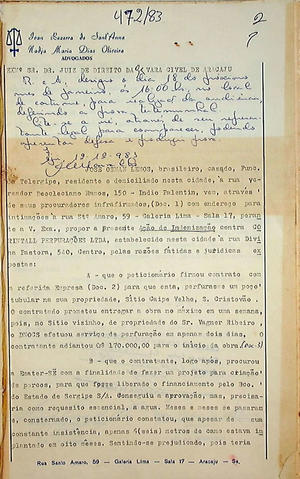 472/83
2
Ivan Bezerra de Sant'Anna
Nadja Maria Dias Oliveira
ADVOGADOS
EXMº SR. DR. JUIZ DE DIREITO DA VARA CIVEL DE ARACAJU
R e A, designo o dia 18 do próximo
mes de janeiro, às 16:00 hs, no local
de costume, para audiência,
deferindo a prova testemunhal.
Cite-se a ré, através de seu represen-
tante legal para comparecer, podendo
apresentar defesa e produzir prova.
12.12.983
JOSÉ OSMAN LEMOS, brasileiro, casado, Func.
Telergipe, residente e domiciliado nesta cidade, a rua ve-
reador Descleciano Ramos, 150 - Indio Palentin, vem, através
de seus procuradores infrafirmados, (Doc. 1) com endereço para
intimações a rua Stº Amaro, 59 - Galeria Lima - Sala 17, peran
te a V. Exa. propor a Presente Ação de Indenização contra CO
RINTALL PERFURAÇÕES LTDA, estabelecido nesta cidade a rua Divi
na Pastora, 540, Centro, pelas razões fáticas e jurídicas ex
postas:
A - que o peticionário firmou contrato com
a referida Empresa (Doc. 2) para que esta, perfurasse um poço
tubular na sua propriedade, Sítio Caipe Velho, S. Cristovão.
O contratado prometeu entregar a obra no máximo em uma semana,
pois, no Sítio visinho, de propriedade do Sr. Wagner Ribeiro, o
DNOCS efetuou serviço de perfuração em apenas dois dias. O
contratante adiantou Cr$ 170.000,00 para o início da obra (Doc. 3)
B - que o contratante, logo após, procurou
a Emater-SE com a finalidade de fazer um projeto para criação
de porcos, para que fosse liberado o financiamento pelo Bco. do
Estado de Sergipe S/A. Conseguiu a aprovação, mas, precisa-
ria como requesito essencial, a agua. Meses e meses se passaram
e, consternado, o peticionário constatou, que apesar de sua
constante insistência, apenas 6(seis) metros de como estava im
plantado em oito meses. Sentindo-se prejudicado, pois teria
Rua Santo Amaro, 59 — Galeria Lima — Sala 17 — Aracaju — Se.